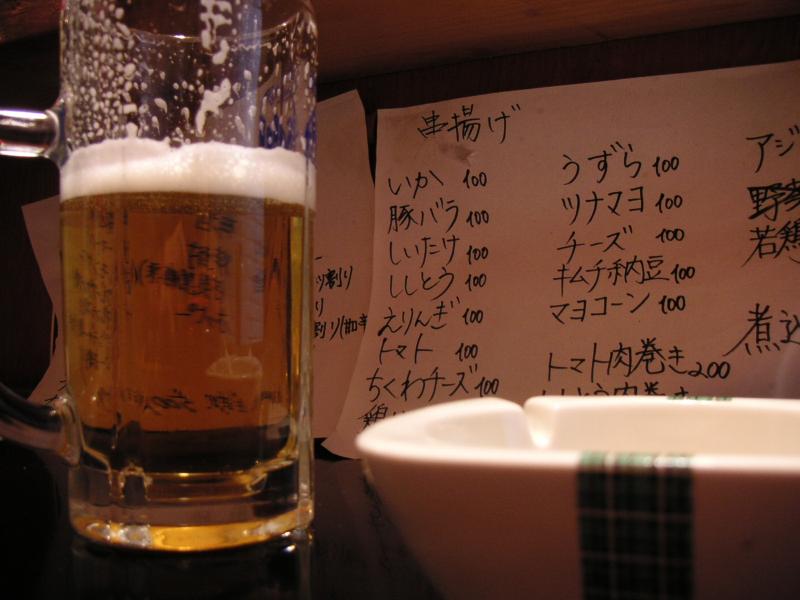 串揚げ
いか 100
豚バラ 100
しいたけ 100
ししとう 100
えりんぎ 100
トマト 100
ちくわチーズ 100
鶏
うずら 100
ツナマヨ 100
チーズ 100
キムチ納豆 100
マヨコーン 100
トマト肉巻き 200
ししとう肉巻き
アジ
野菜
若鶏
煮込
ツ割り
り
割り(加辛